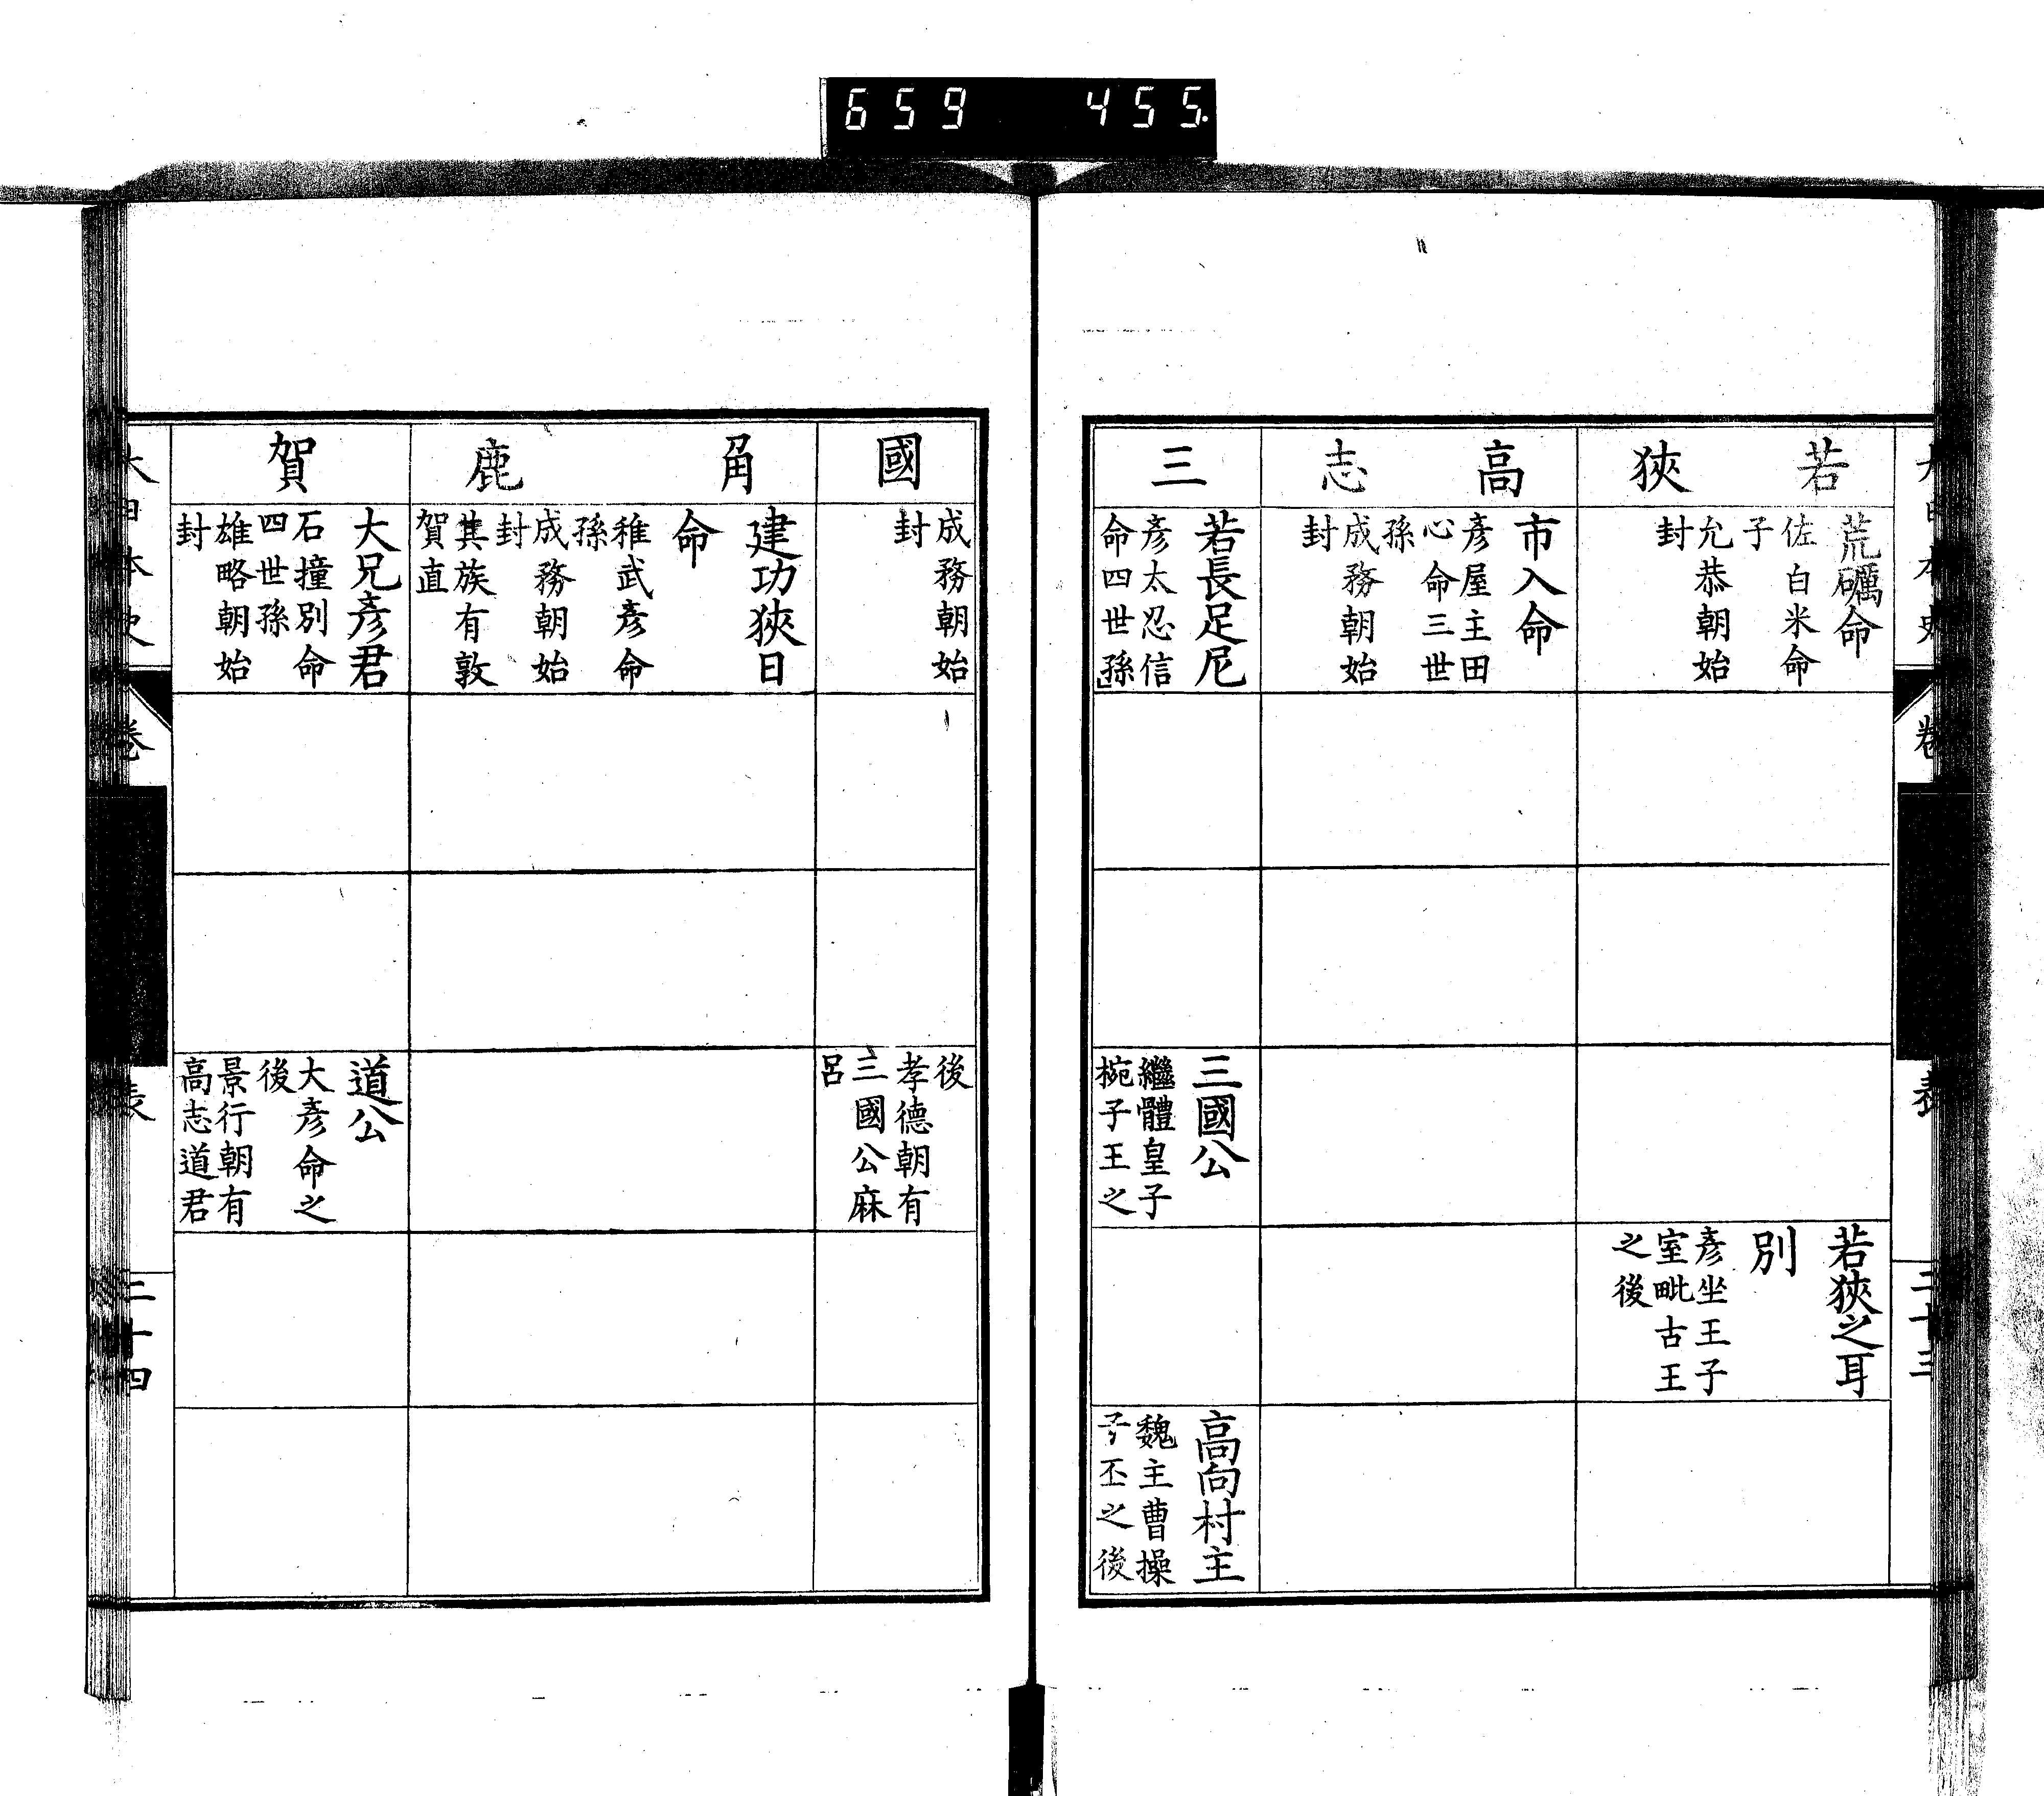 659 455.
大日本史
卷
表
三十三
若狹
荒礪命
佐白米命
子
允恭朝始
封
若狹之耳
別
彥坐王子
室毗古王
之後
高志
市入命
彥屋主田
心命三世
孫
成務朝始
封
三
若長足尼
彥太忍信
命四世孫
三國公
繼體皇子
椀子王之
高向村主
魏主曹操
子丕之後
國
成務朝始
封
後
孝德朝有
三國公麻
呂
角鹿
建功狹日
命
稚武彥命
孫
成務朝始
封
其族有敦
賀直
賀
大兄彥君
石撞別命
四世孫
雄略朝始
封
道公
大彥命之
後
景行朝有
高志道君
大日本史
卷
表
三十四